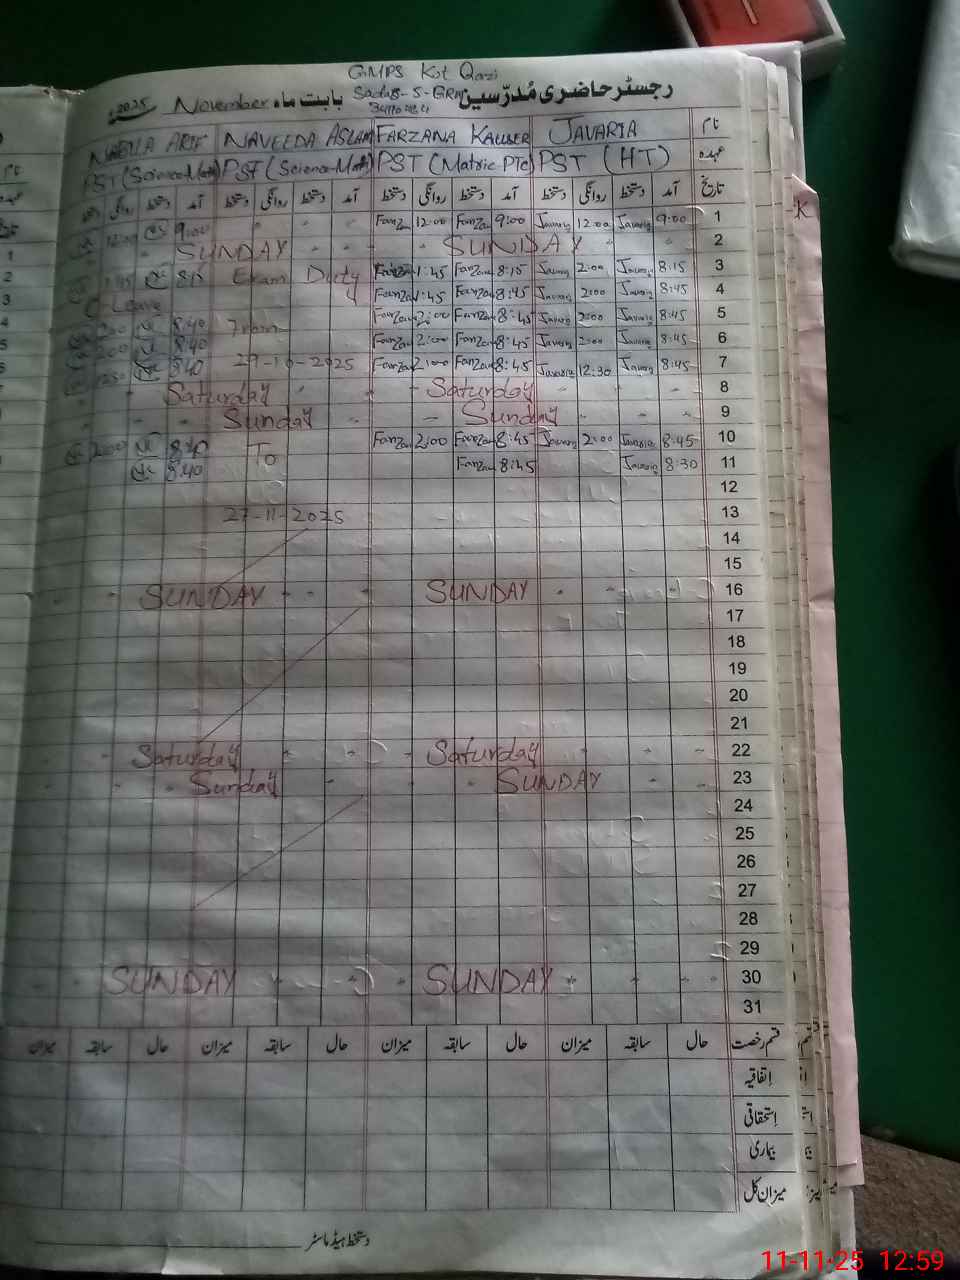 GMPS Kot Qazi
رجسٹر حاضری مُدرّسین Sadar-S-GRW بابت ماہ November 2025
34110
نام JAVARIA FARZANA KAUSER NAVEEDA ASLAM NABILA ARIF
عہدہ PST (HT) PST (Matric-PTC) PST (Science-Math) PST (Science-Math)
تاریخ آمد دستخط روانگی دستخط آمد دستخط روانگی دستخط آمد دستخط روانگی دستخط آمد دستخط روانگی دستخط
1 9:00 Javaria 12:00 Javaria 9:00 Farzana 12:00 Farzana 9:00 12:00
2 SUNDAY SUNDAY
3 8:15 Javaria 2:00 Javaria 8:15 Farzana 1:45 Farzana Exam Duty 8:15 1:45
4 8:45 Javaria 2:00 Javaria 8:45 Farzana 1:45 Farzana C Leave
5 8:45 Javaria 2:00 Javaria 8:45 Farzana 2:00 Farzana From 8:40 2:00
6 8:45 Javaria 2:00 Javaria 8:45 Farzana 2:00 Farzana 8:40 2:00
7 8:45 Javaria 12:30 Javaria 8:45 Farzana 2:00 Farzana 29-10-2025 8:40 1250
8 Saturday Saturday
9 Sunday Sunday
10 8:45 Javaria 2:00 Javaria 8:45 Farzana 2:00 Farzana To 8:40 2:00
11 8:30 Javaria 8:45 Farzana 8:40
12
13 27-11-2025
14
15
16 SUNDAY SUNDAY
17
18
19
20
21
22 Saturday Saturday
23 SUNDAY Sunday
24
25
26
27
28
29
30 SUNDAY SUNDAY
31
قسم رخصت حال سابقہ میزان حال سابقہ میزان حال سابقہ میزان حال سابقہ میزان
اتفاقیہ
استحقاقی
بیماری
میزان کل
دستخط ہیڈ ماسٹر
11-11-25 12:59